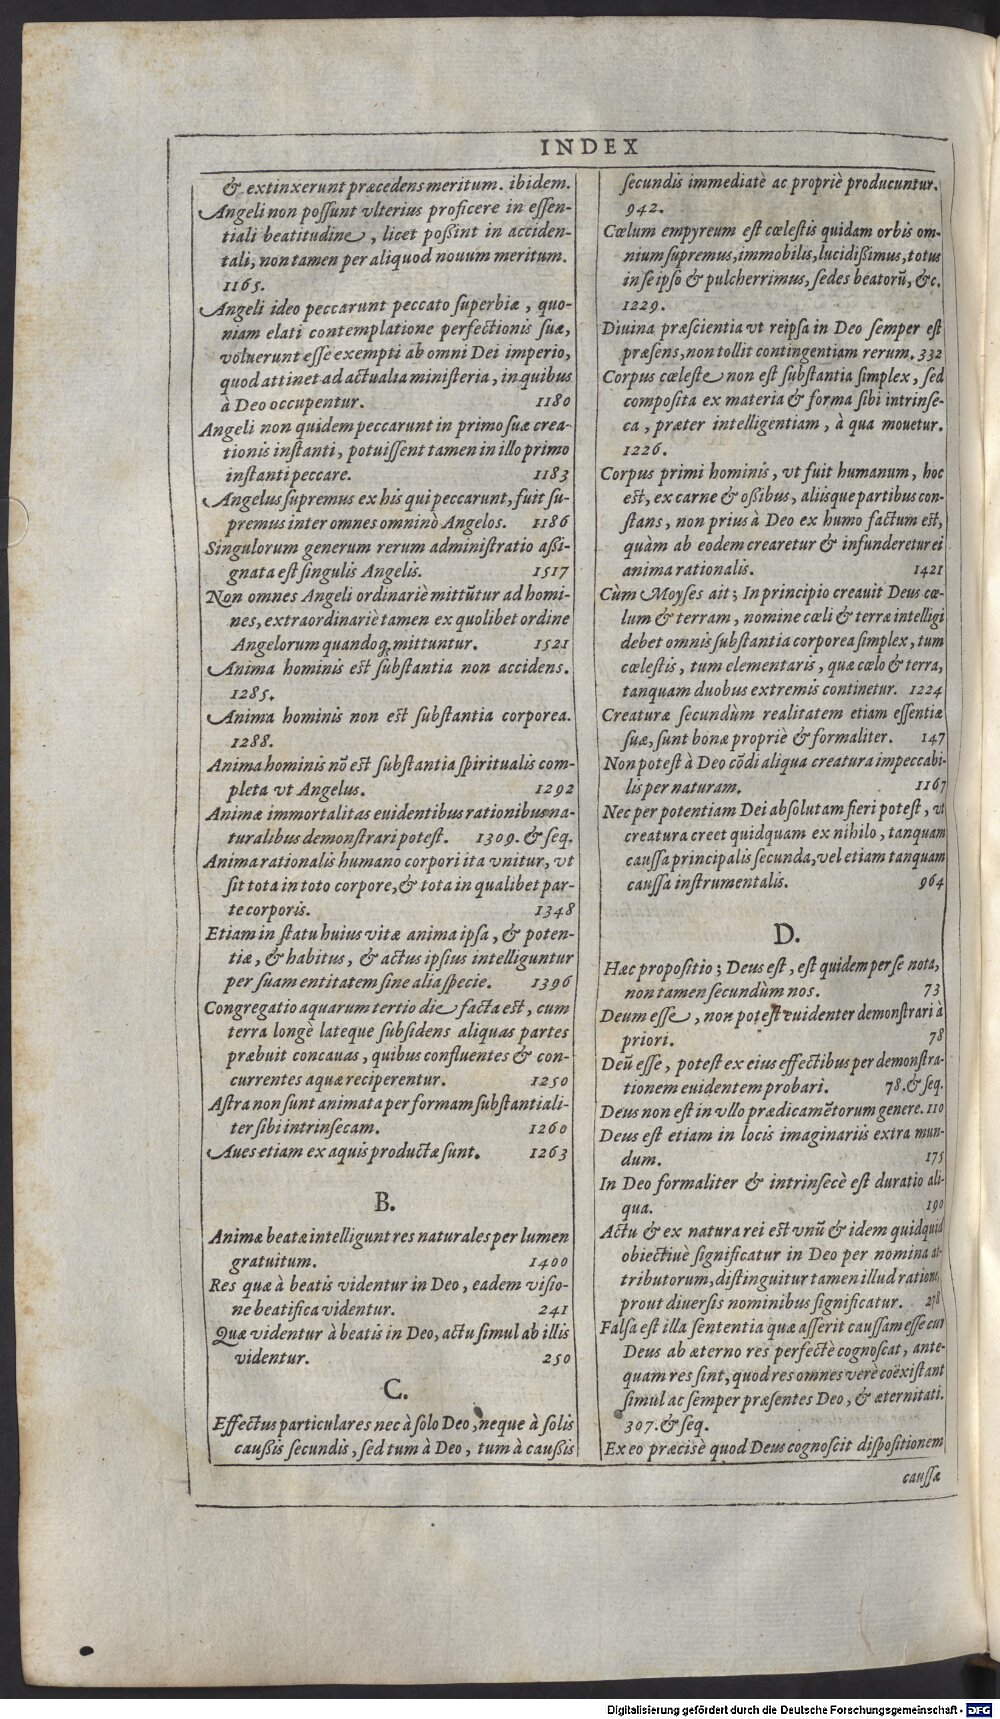 INDEX
& extinxerunt præcedens meritum. ibidem.
Angeli non poſſunt vlterius proficere in eſſen-
tiali beatitudine, licet poßint in acciden-
tali, non tamen per aliquod nouum meritum.
1165.
Angeli ideo peccarunt peccato ſuperbiæ, quo-
niam elati contemplatione perfectionis ſuæ,
voluerunt eſſe exempti ab omni Dei imperio,
quod attinet ad actualia miniſteria, in quibus
à Deo occupentur. 1180
Angeli non quidem peccarunt in primo ſuæ crea-
tionis inſtanti, potuiſſent tamen in illo primo
inſtanti peccare. 1183
Angelus ſupremus ex his qui peccarunt, fuit ſu-
premus inter omnes omninò Angelos. 1186
Singulorum generum rerum adminiſtratio aßi-
gnata eſt ſingulis Angelis. 1517
Non omnes Angeli ordinariè mittūtur ad homi-
nes, extraordinariè tamen ex quolibet ordine
Angelorum quandoq; mittuntur. 1521
Anima hominis eſt ſubſtantia non accidens.
1285.
Anima hominis non eſt ſubſtantia corporea.
1288.
Anima hominis nō eſt ſubſtantia ſpiritualis com-
pleta vt Angelus. 1292
Animæ immortalitas euidentibus rationibus na-
turalibus demonſtrari poteſt. 1309. & ſeq.
Anima rationalis humano corpori ita vnitur, vt
ſit tota in toto corpore, & tota in qualibet par-
te corporis. 1348
Etiam in ſtatu huius vitæ anima ipſa, & poten-
tiæ, & habitus, & actus ipſius intelliguntur
per ſuam entitatem ſine alia ſpecie. 1396
Congregatio aquarum tertio die facta eſt, cum
terra longè lateque ſubſidens aliquas partes
præbuit concauas, quibus confluentes & con-
currentes aquæ reciperentur. 1250
Aſtra non ſunt animata per formam ſubſtantiali-
ter ſibi intrinſecam. 1260
Aues etiam ex aquis productæ ſunt. 1263
B.
Animæ beatæ intelligunt res naturales per lumen
gratuitum. 1400
Res quæ à beatis videntur in Deo, eadem viſio-
ne beatifica videntur. 241
Quæ videntur à beatis in Deo, actu ſimul ab illis
videntur. 250
C.
Effectus particulares nec à ſolo Deo, neque à ſolis
cauſſis ſecundis, ſed tum à Deo, tum à cauſſis
ſecundis immediatè ac propriè producuntur.
942.
Cœlum empyreum eſt cœleſtis quidam orbis om-
nium ſupremus, immobilis, lucidißimus, totus
in ſe ipſo & pulcherrimus, ſedes beatorū, &c.
1229.
Diuina præſcientia vt reipſa in Deo ſemper eſt
præſens, non tollit contingentiam rerum. 332
Corpus cœleſte non eſt ſubſtantia ſimplex, ſed
compoſita ex materia & forma ſibi intrinſe-
ca, præter intelligentiam, à qua mouetur.
1226.
Corpus primi hominis, vt fuit humanum, hoc
eſt, ex carne & oßibus, aliisque partibus con-
ſtans, non prius à Deo ex humo factum eſt,
quàm ab eodem crearetur & infunderetur ei
anima rationalis. 1421
Cùm Moyſes ait; In principio creauit Deus cœ-
lum & terram, nomine cœli & terræ intelligi
debet omnis ſubſtantia corporea ſimplex, tum
cœleſtis, tum elementaris, quæ cœlo & terra,
tanquam duobus extremis continetur. 1224
Creaturæ ſecundùm realitatem etiam eſſentiæ
ſuæ, ſunt bonæ propriè & formaliter. 147
Non poteſt à Deo cōdi aliqua creatura impeccabi-
lis per naturam. 1167
Nec per potentiam Dei abſolutam fieri poteſt, vt
creatura creet quidquam ex nihilo, tanquam
cauſſa principalis ſecunda, vel etiam tanquam
cauſſa inſtrumentalis. 964
D.
Hæc propoſitio; Deus eſt, eſt quidem per ſe nota,
non tamen ſecundùm nos. 73
Deum eſſe, non poteſt euidenter demonſtrari à
priori. 78
Deū eſſe, poteſt ex eius effectibus per demonſtra-
tionem euidentem probari. 78. & ſeq.
Deus non eſt in vllo prædicamētorum genere. 110
Deus eſt etiam in locis imaginariis extra mun-
dum. 175
In Deo formaliter & intrinſecè eſt duratio ali-
qua. 190
Actu & ex natura rei eſt vnū & idem quidquid
obiectiuè ſignificatur in Deo per nomina at-
tributorum, diſtinguitur tamen illud ratione,
prout diuerſis nominibus ſignificatur. 278
Falſa eſt illa ſententia quæ aſſerit cauſſam eſſe cur
Deus ab æterno res perfectè cognoſcat, ante-
quam res ſint, quod res omnes verè coëxiſtant
ſimul ac ſemper præſentes Deo, & æternitati.
307. & ſeq.
Ex eo præcisè quod Deus cognoſcit diſpoſitionem
cauſſæ
Digitalisierung gefördert durch die Deutsche Forschungsgemeinschaft - DFG